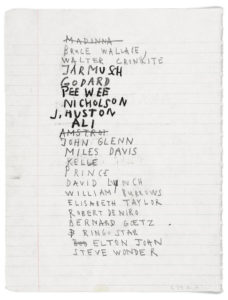 MADONNA
BRUCE WALLACE,
WALTER CRONKITE
JARMUSH
GODARD
PEE WEE
NICHOLSON
J. HUSTON
ALI
JOHN GLENN
MILES DAVIS
PRINCE
DAVID LYNCH
WILLIAM BURROWS
ELISABETH TAYLOR
ROBERT DENIRO
BERNARD GOETZ
RINGO STAR
ELTON JOHN
STEVE WONDER